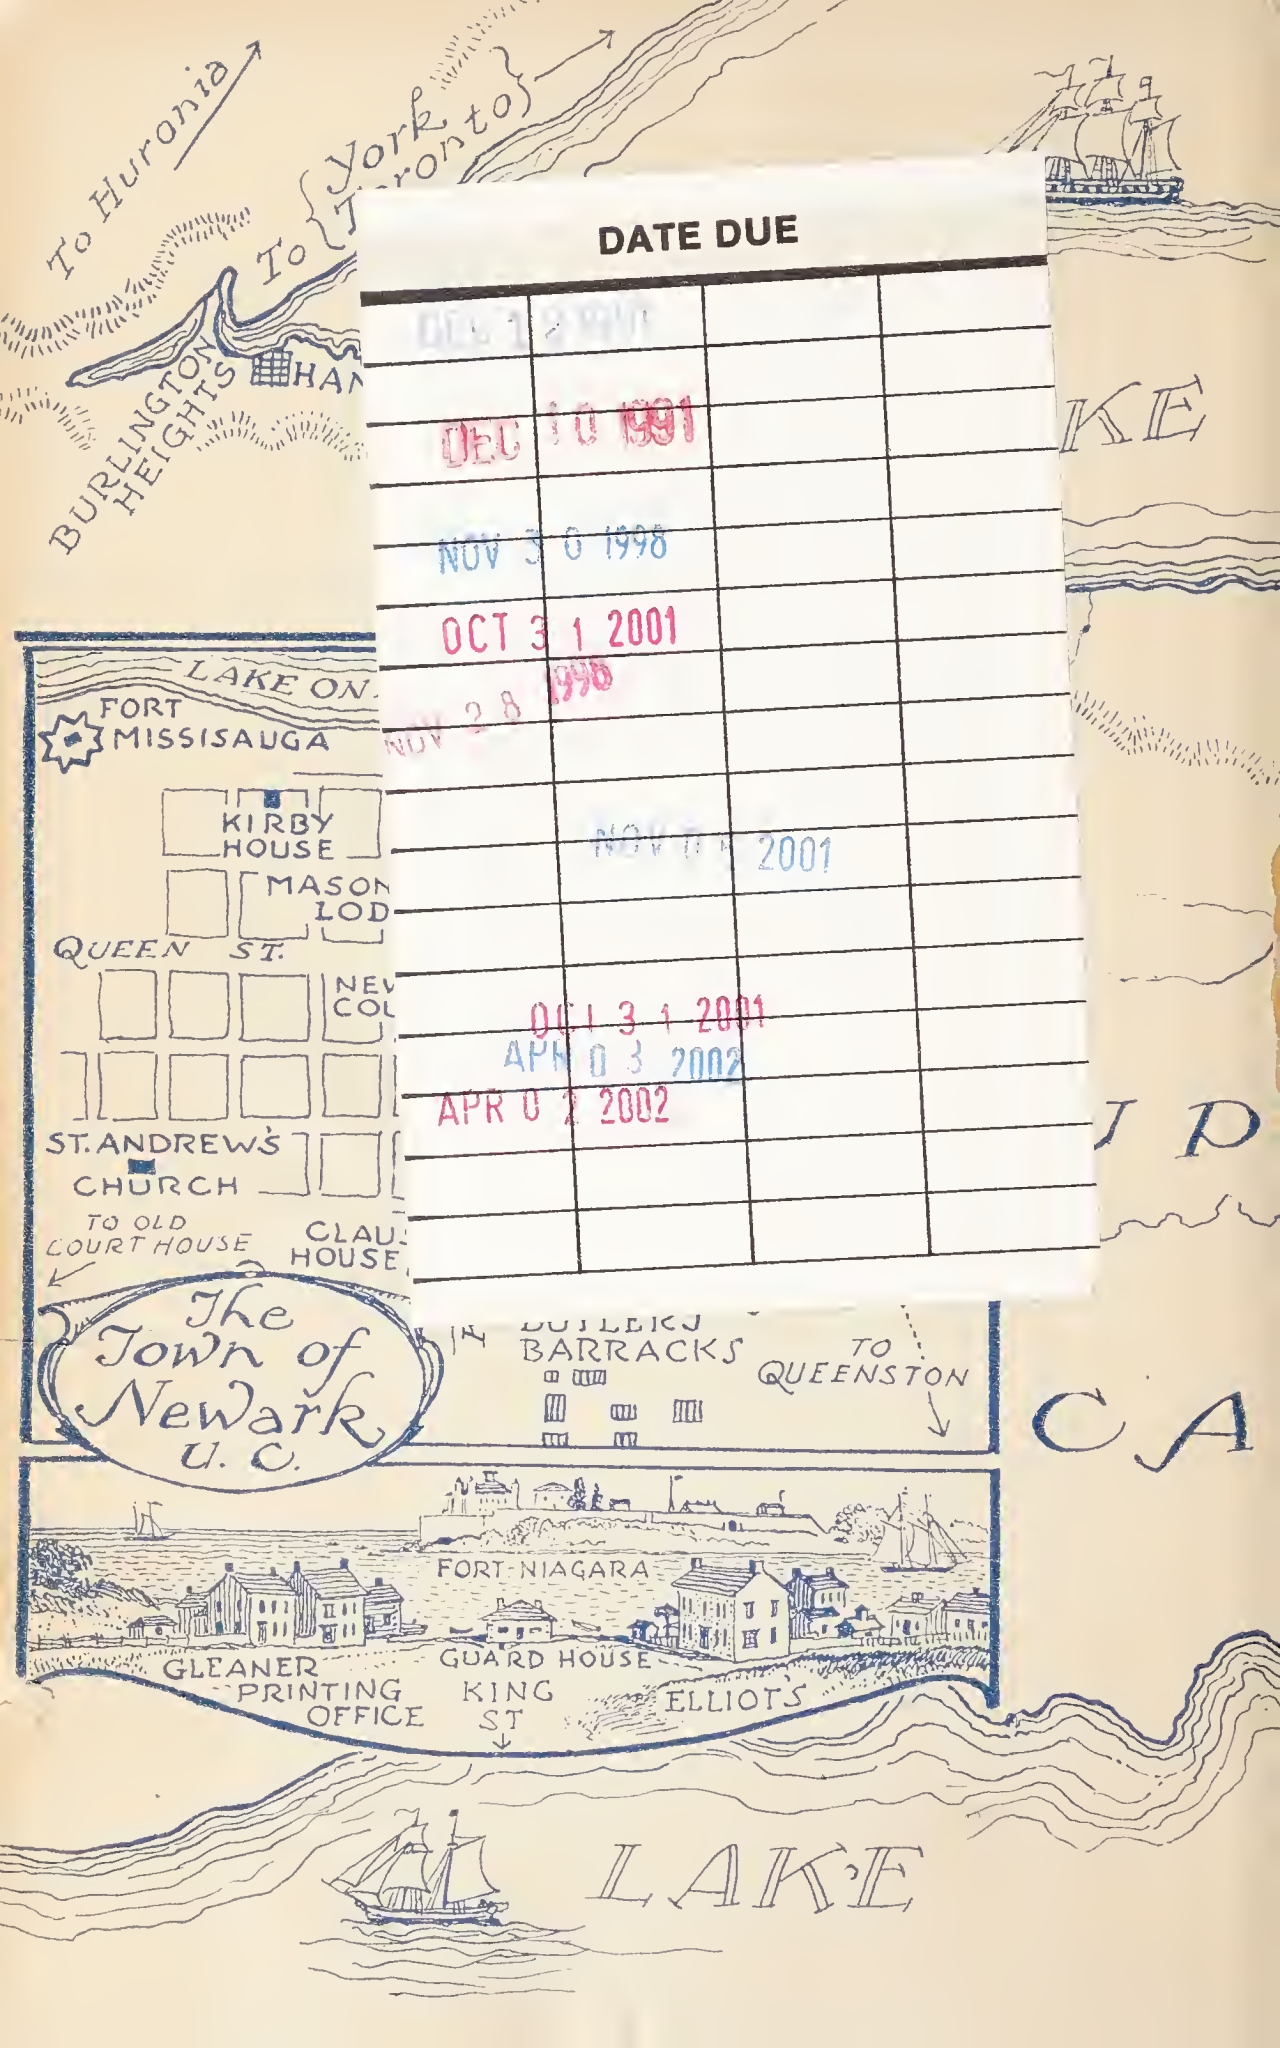 To Huronia
To {York
Toronto}
DATE DUE
DEC 1
DEC 10 1991
NOV 30 1998
OCT 31 2001
NOV 28 1998
NOV 2001
OCT 31 2001
APR 03 2002
APR 02 2002
BURLINGTON
HEIGHTS
HAM
KE
LAKE ON
FORT
MISSISAUGA
KIRBY
HOUSE
MASON
LOD
QUEEN ST.
NEW
COL
ST. ANDREW'S
CHURCH
TO OLD
COURT HOUSE
CLAUS
HOUSE
The
Town of
Newark
U. C.
BUTLER'S
BARRACKS
TO
QUEENSTON
U P
C A
FORT NIAGARA
GLEANER
PRINTING
OFFICE
GUARD HOUSE
KING
ST
ELLIOT'S
LAKE